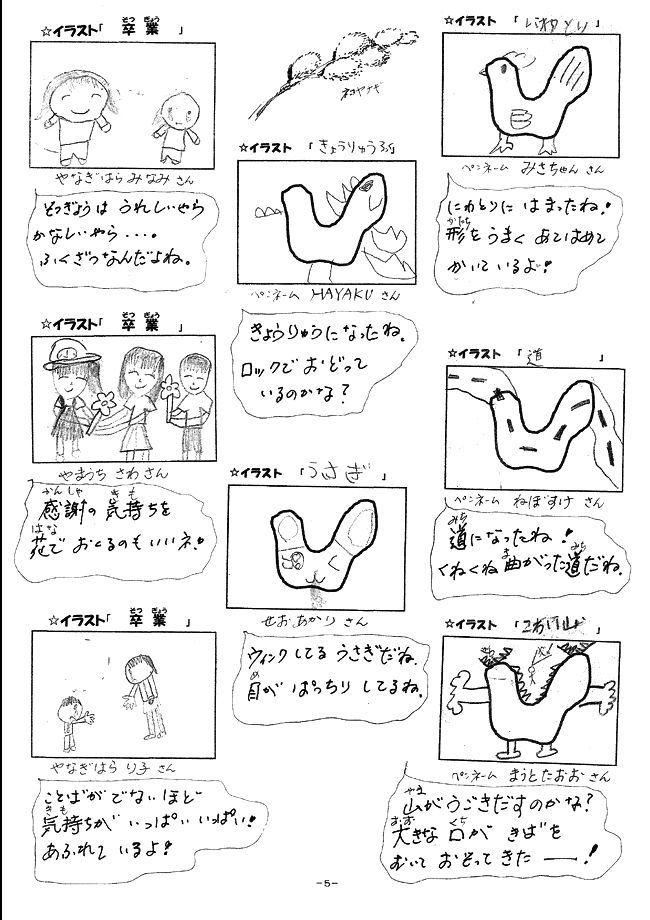 ☆イラスト「 卒業 」
そつ ぎょう
やなぎはら みなみ さん
そつぎょうは うれしいやら
かなしいやら・・・。
ふくざつなんだよね。
☆イラスト「 卒業 」
そつ ぎょう
やまうち さわ さん
かんしゃ きも
感謝の 気持ちを
はな
花で おくるのも いいネ!
☆イラスト「 卒業 」
そつ ぎょう
やなぎはら り子 さん
ことばが でないほど
きも
気持ちが いっぱい いっぱい!
あふれて いるよ!
ネコヤナギ
☆イラスト 「きょうりゅう」
ペンネーム HAYAKU さん
きょうりゅうになったね。
ロックで おどって
いるのかな?
☆イラスト 「うさぎ」
せお あかり さん
ウィンクしてる うさぎだね。
め
目が ぱっちり してるね。
☆イラスト 「にわとり」
ペンネーム みさちゃん さん
にわとりに はまったね!
かたち
形を うまく あてはめて
かいているよ!
☆イラスト 「道 」
ペンネーム ねぼすけ さん
みち
道になったね!
ま みち
くねくね 曲がった道だね。
☆イラスト 「こわい山」
ペンネーム まうとたおお さん
やま
山が うごきだすのかな?
おお くち
大きな 口が きばを
むいて おそってきたー!
-5-